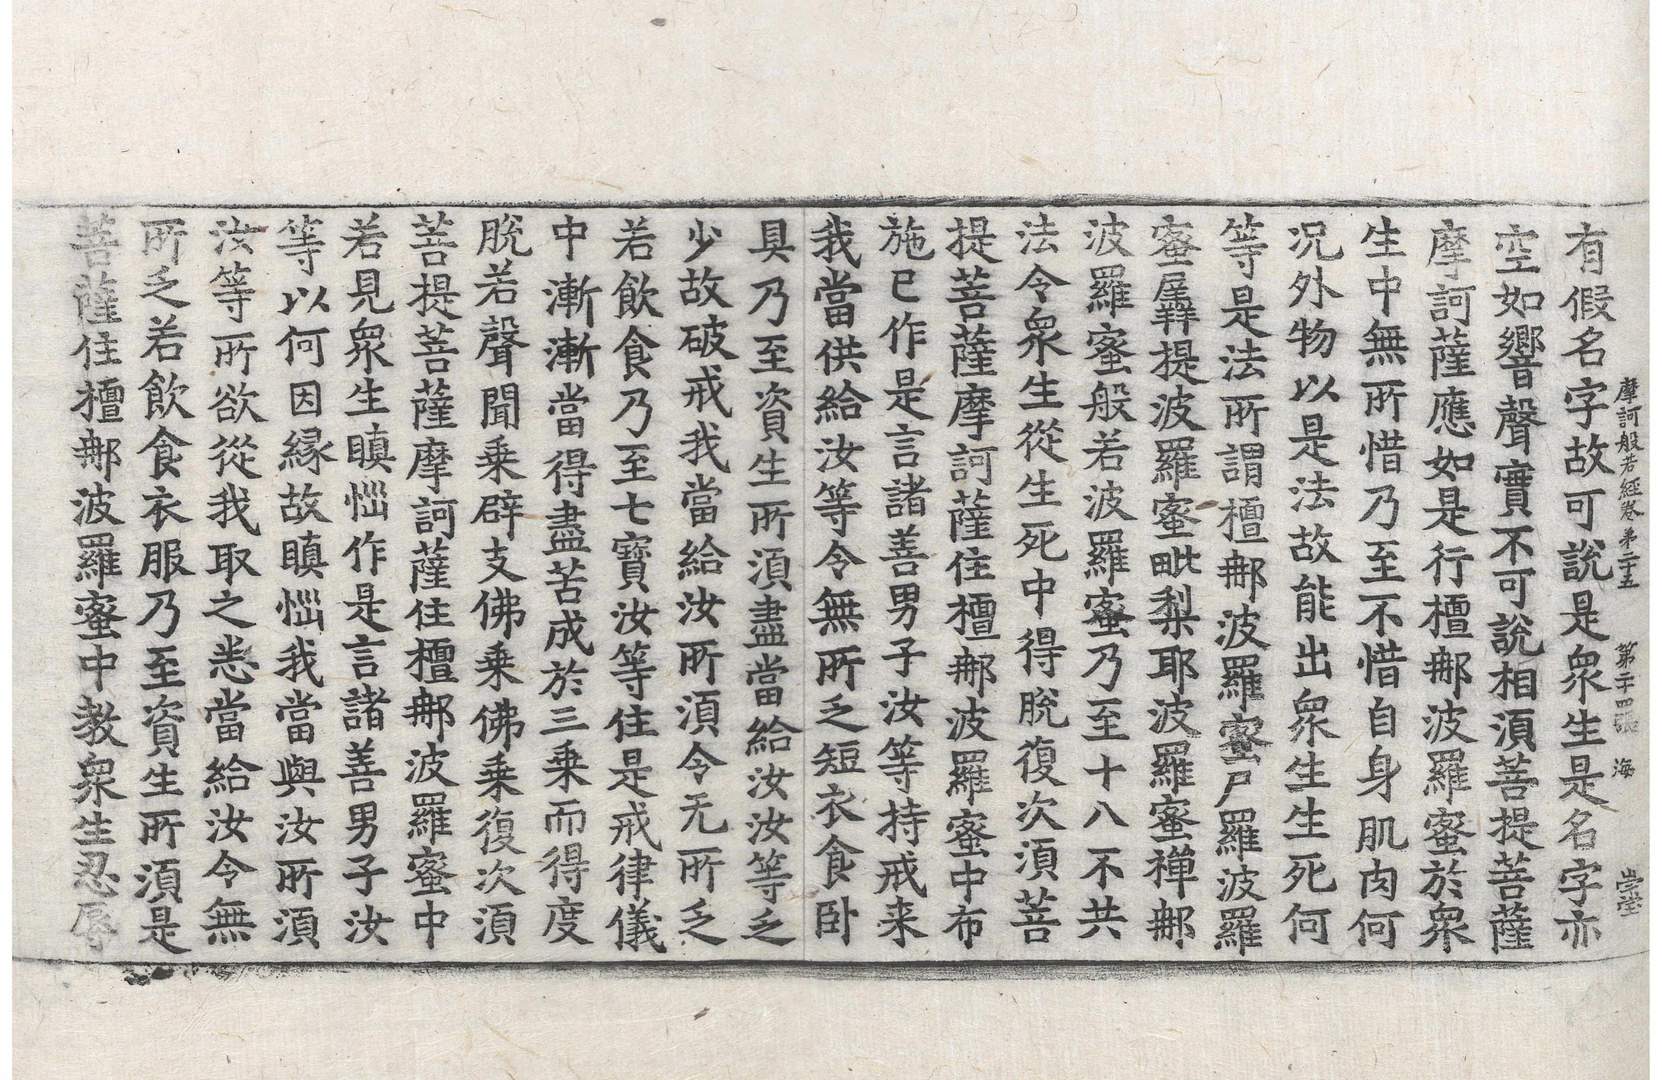 摩訶般若經卷第二十五 第二十四張 海
有假名字故可說是衆生是名字亦
空如響聲實不可說相須菩提菩薩
摩訶薩應如是行檀那波羅蜜於衆
生中無所惜乃至不惜自身肌肉何
況外物以是法故能出衆生生死何
等是法所謂檀那波羅蜜尸羅波羅
蜜羼提波羅蜜毗梨耶波羅蜜禪那
波羅蜜般若波羅蜜乃至十八不共
法令衆生從生死中得脫復次須菩
提菩薩摩訶薩住檀那波羅蜜中布
施已作是言諸善男子汝等持戒来
我當供給汝等令無所乏短衣食卧
具乃至資生所須盡當給汝汝等乏
少故破戒我當給汝所須令无所乏
若飲食乃至七寶汝等住是戒律儀
中漸漸當得盡苦成於三乘而得度
脫若聲聞乘辟支佛乘佛乘復次須
菩提菩薩摩訶薩住檀那波羅蜜中
若見衆生瞋惱作是言諸善男子汝
等以何因緣故瞋惱我當與汝所須
汝等所欲從我取之悉當給汝令無
所乏若飲食衣服乃至資生所須是
菩薩住檀那波羅蜜中教衆生忍辱